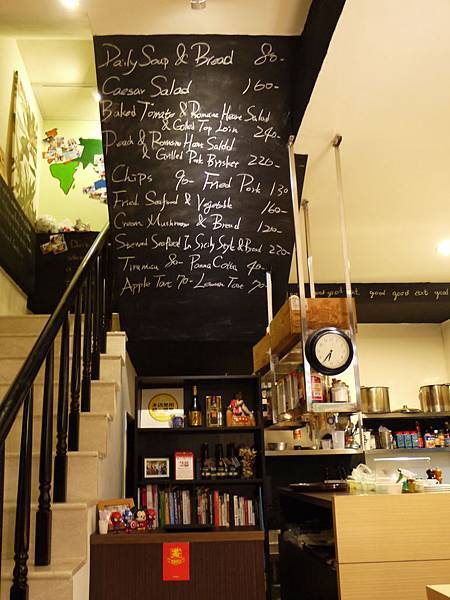 Daily Soup & Bread 80-
Caesar Salad 160-
Baked Tomato & Romaine Heave Salad
& Grilled Top Loin 240-
Peach & Romaine Heave Salad
& Grilled Pork Brisket 220-
Chips 90- Fried Pork 130
Fried Seafood & Vegetable 160-
Cream Mushroom & Bread 120-
Stewed Seafood In Sicily Style & Bread 220
Tiramisu 80- Panna Cotta 40-
Apple Tart 70- Lemon Tart 70-
good good eat good